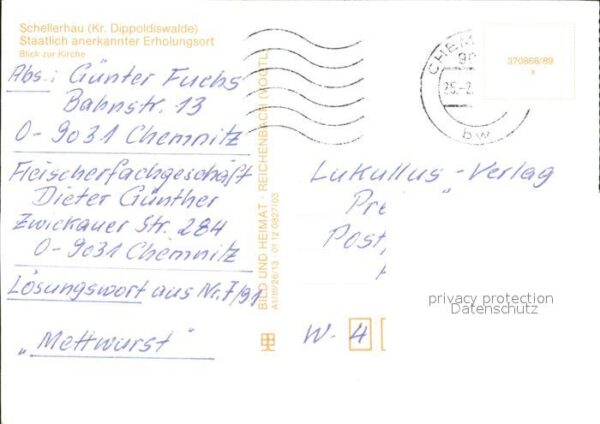 Schellerhau (Kr. Dippoldiswalde)
Staatlich anerkannter Erholungsort
Blick zur Kirche
Abs.: Günter Fuchs
Bahnstr. 13
O-9031 Chemnitz
Fleischerfachgeschäft
Dieter Günther
Zwickauer Str. 284
O-9031 Chemnitz
Lösungswort aus Nr. 7/91
„Mettwurst"
BILD UND HEIMAT · REICHENBACH (VOGTL)
A1/III/26/13 · 01 12 0827/03
CHEM
90
25.-2.
bw
370866/89
x
Lukullus-Verlag
Pre
Post
W-4
privacy protection
Datenschutz